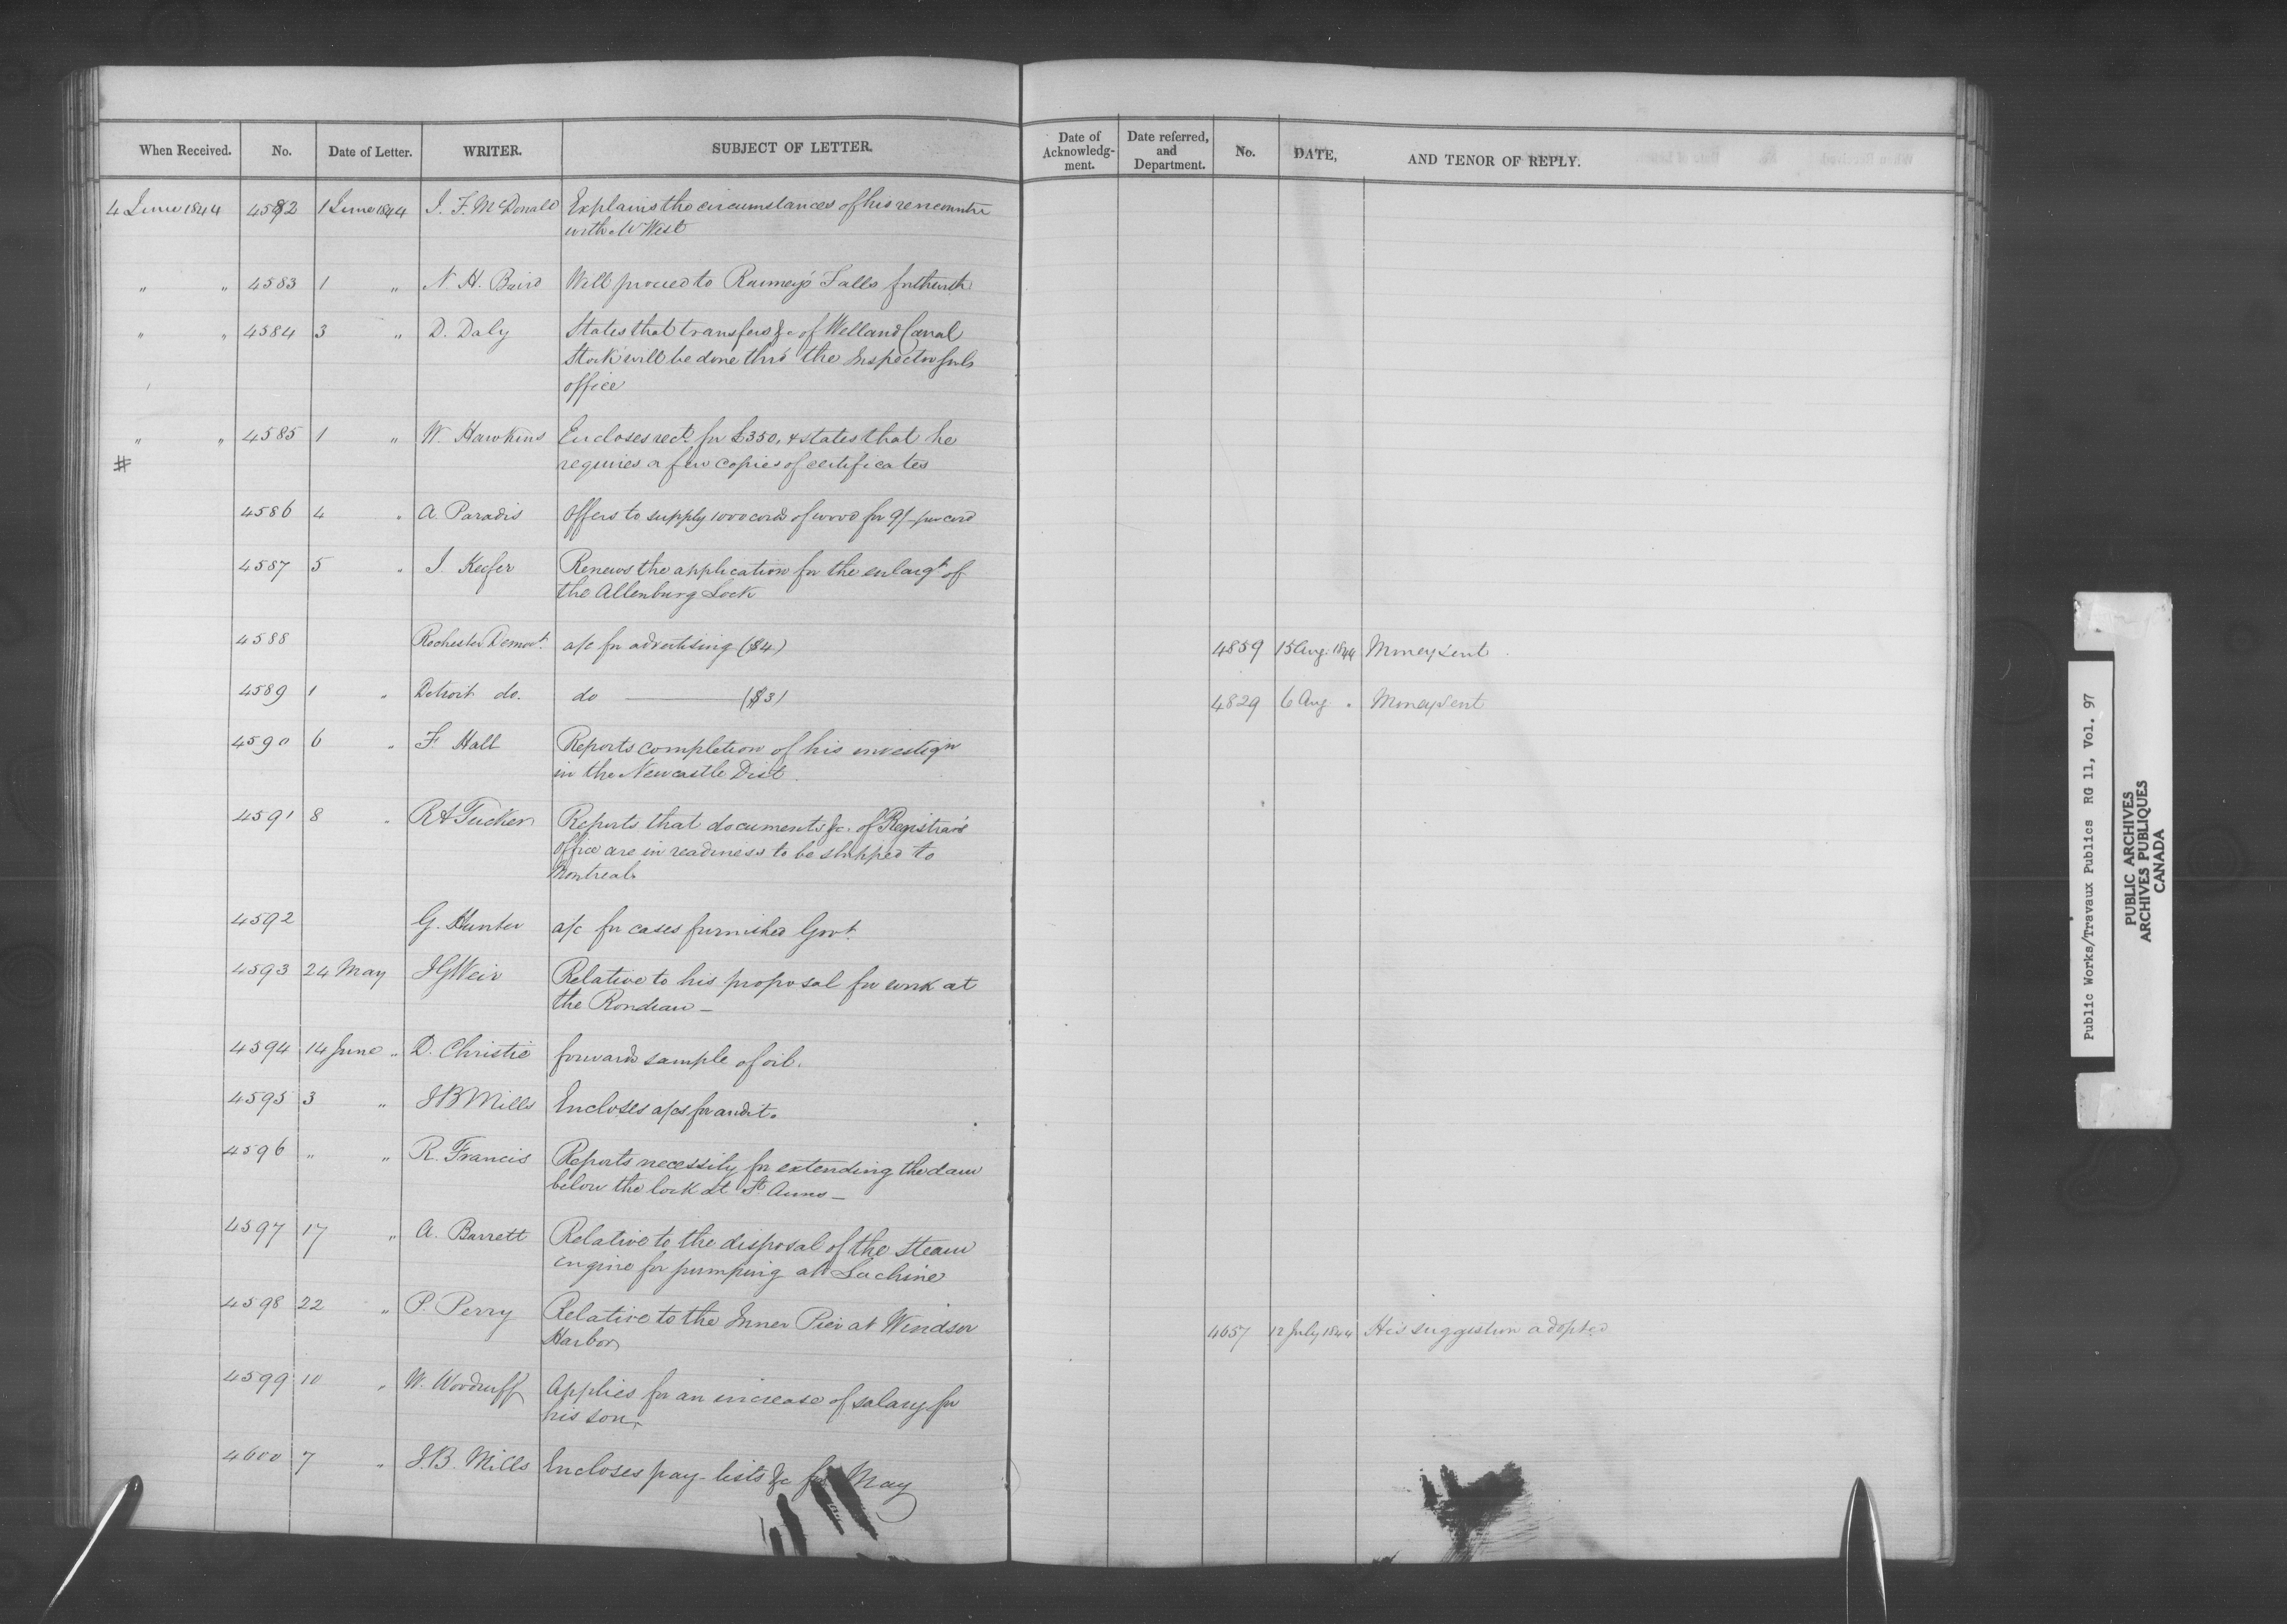 When Received. No. Date of Letter. WRITER. SUBJECT OF LETTER.
4 June 1844 4582 1 June 1844 J. F. McDonald Explains the circumstances of his rencountre
with Mr West
" " 4583 1 " N. H. Baird Will proceed to Ranney's Falls forthwith
" " 4584 3 " D. Daly States that transfers &c of Welland Canal
Stock will be done thro' the Inspector Genls
office
" " 4585 1 " W. Hawkins Encloses rect. for £350, & states that he
# requires a few copies of certificates
4586 4 " A. Paradis Offers to supply 1000 cords of wood for 9/- per cord
4587 5 " J. Keefer Renews the application for the enlargt. of
the Allenburg Lock
4588 Rochester Democt. a/c for advertising ($4)
4589 1 " Detroit do. do ——— ($3)
4590 6 " F. Hall Reports completion of his investign
in the Newcastle Dist.
4591 8 " R A Tucker Reports that documents &c. of Registrar's
Office are in readiness to be shipped to
Montreal.
4592 G. Hunter a/c for cases furnished Govt.
4593 24 May J G Weir Relative to his proposal for work at
the Rondeau —
4594 14 June " D. Christie forwards sample of oil.
4595 3 " J B Mills Encloses a/cs for audit.
4596 " " R. Francis Reports necessity for extending the dam
below the lock at St Anns —
4597 17 " A. Barrett Relative to the disposal of the steam
engine for pumping at Lachine
4598 22 " P. Perry Relative to the Inner Pier at Windsor
Harbor
4599 10 " W. Woodruff Applies for an increase of salary for
his son.
4600 7 " J. B. Mills Encloses pay-lists &c for May
Date of Acknowledg-ment. Date referred, and Department. No. DATE, AND TENOR OF REPLY.
4859 15 Aug. 1844 Money sent.
4829 6 Aug " Money sent
4657 12 July 1844 His suggestion adopted
Public Works/Travaux Publics RG 11, Vol. 97
PUBLIC ARCHIVES
ARCHIVES PUBLIQUES
CANADA